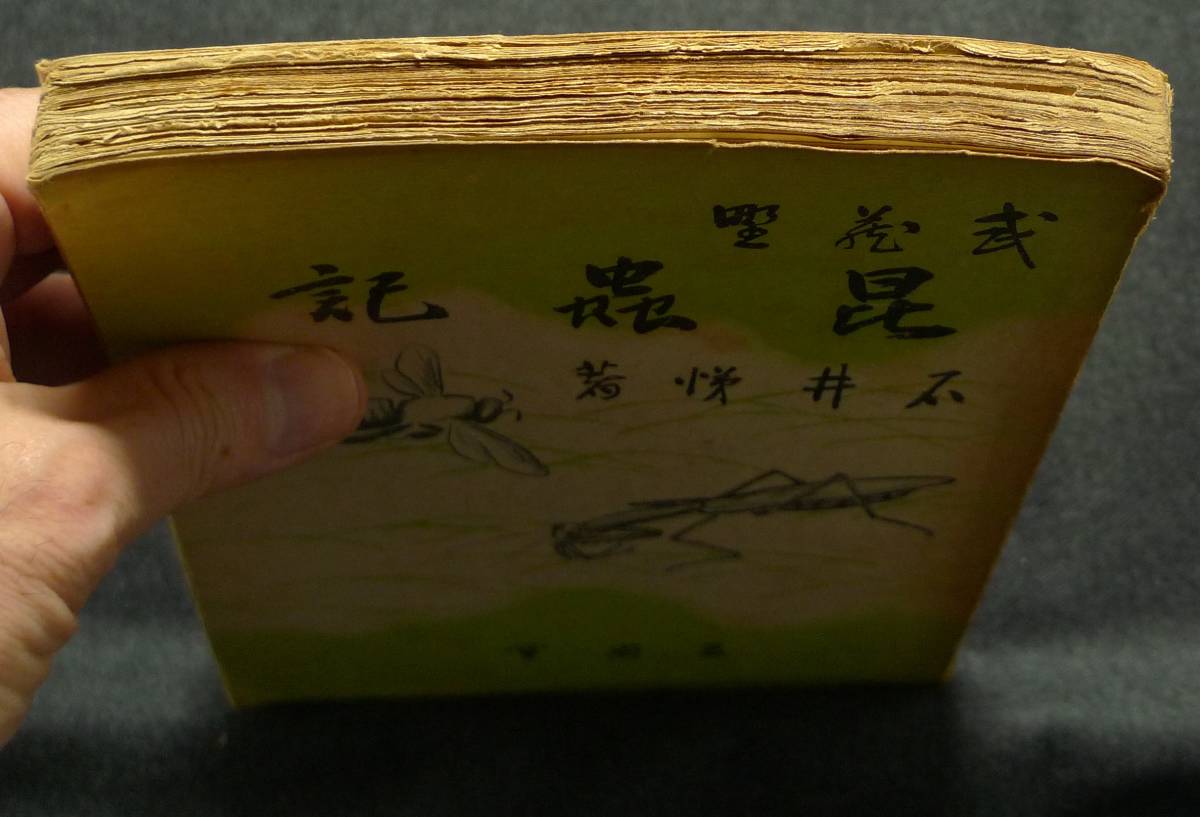 武蔵野
昆蟲記
石井悌著